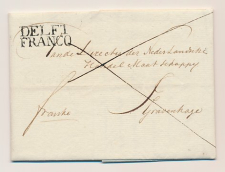 DELFT
FRANCO
Aan de Directie der Nederlandsche
Handel Maatschappy
franko
S Gravenhage